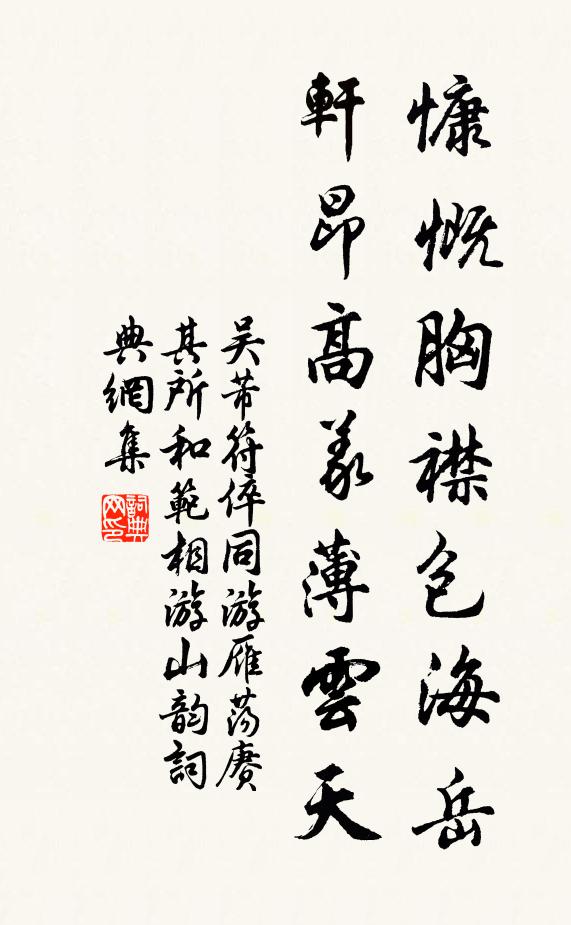 慷慨胸襟包海岳
軒昂高義薄雲天
吴芾符倅同游雁荡赓
其所和範相游山韵詞
典網集
詞典网印